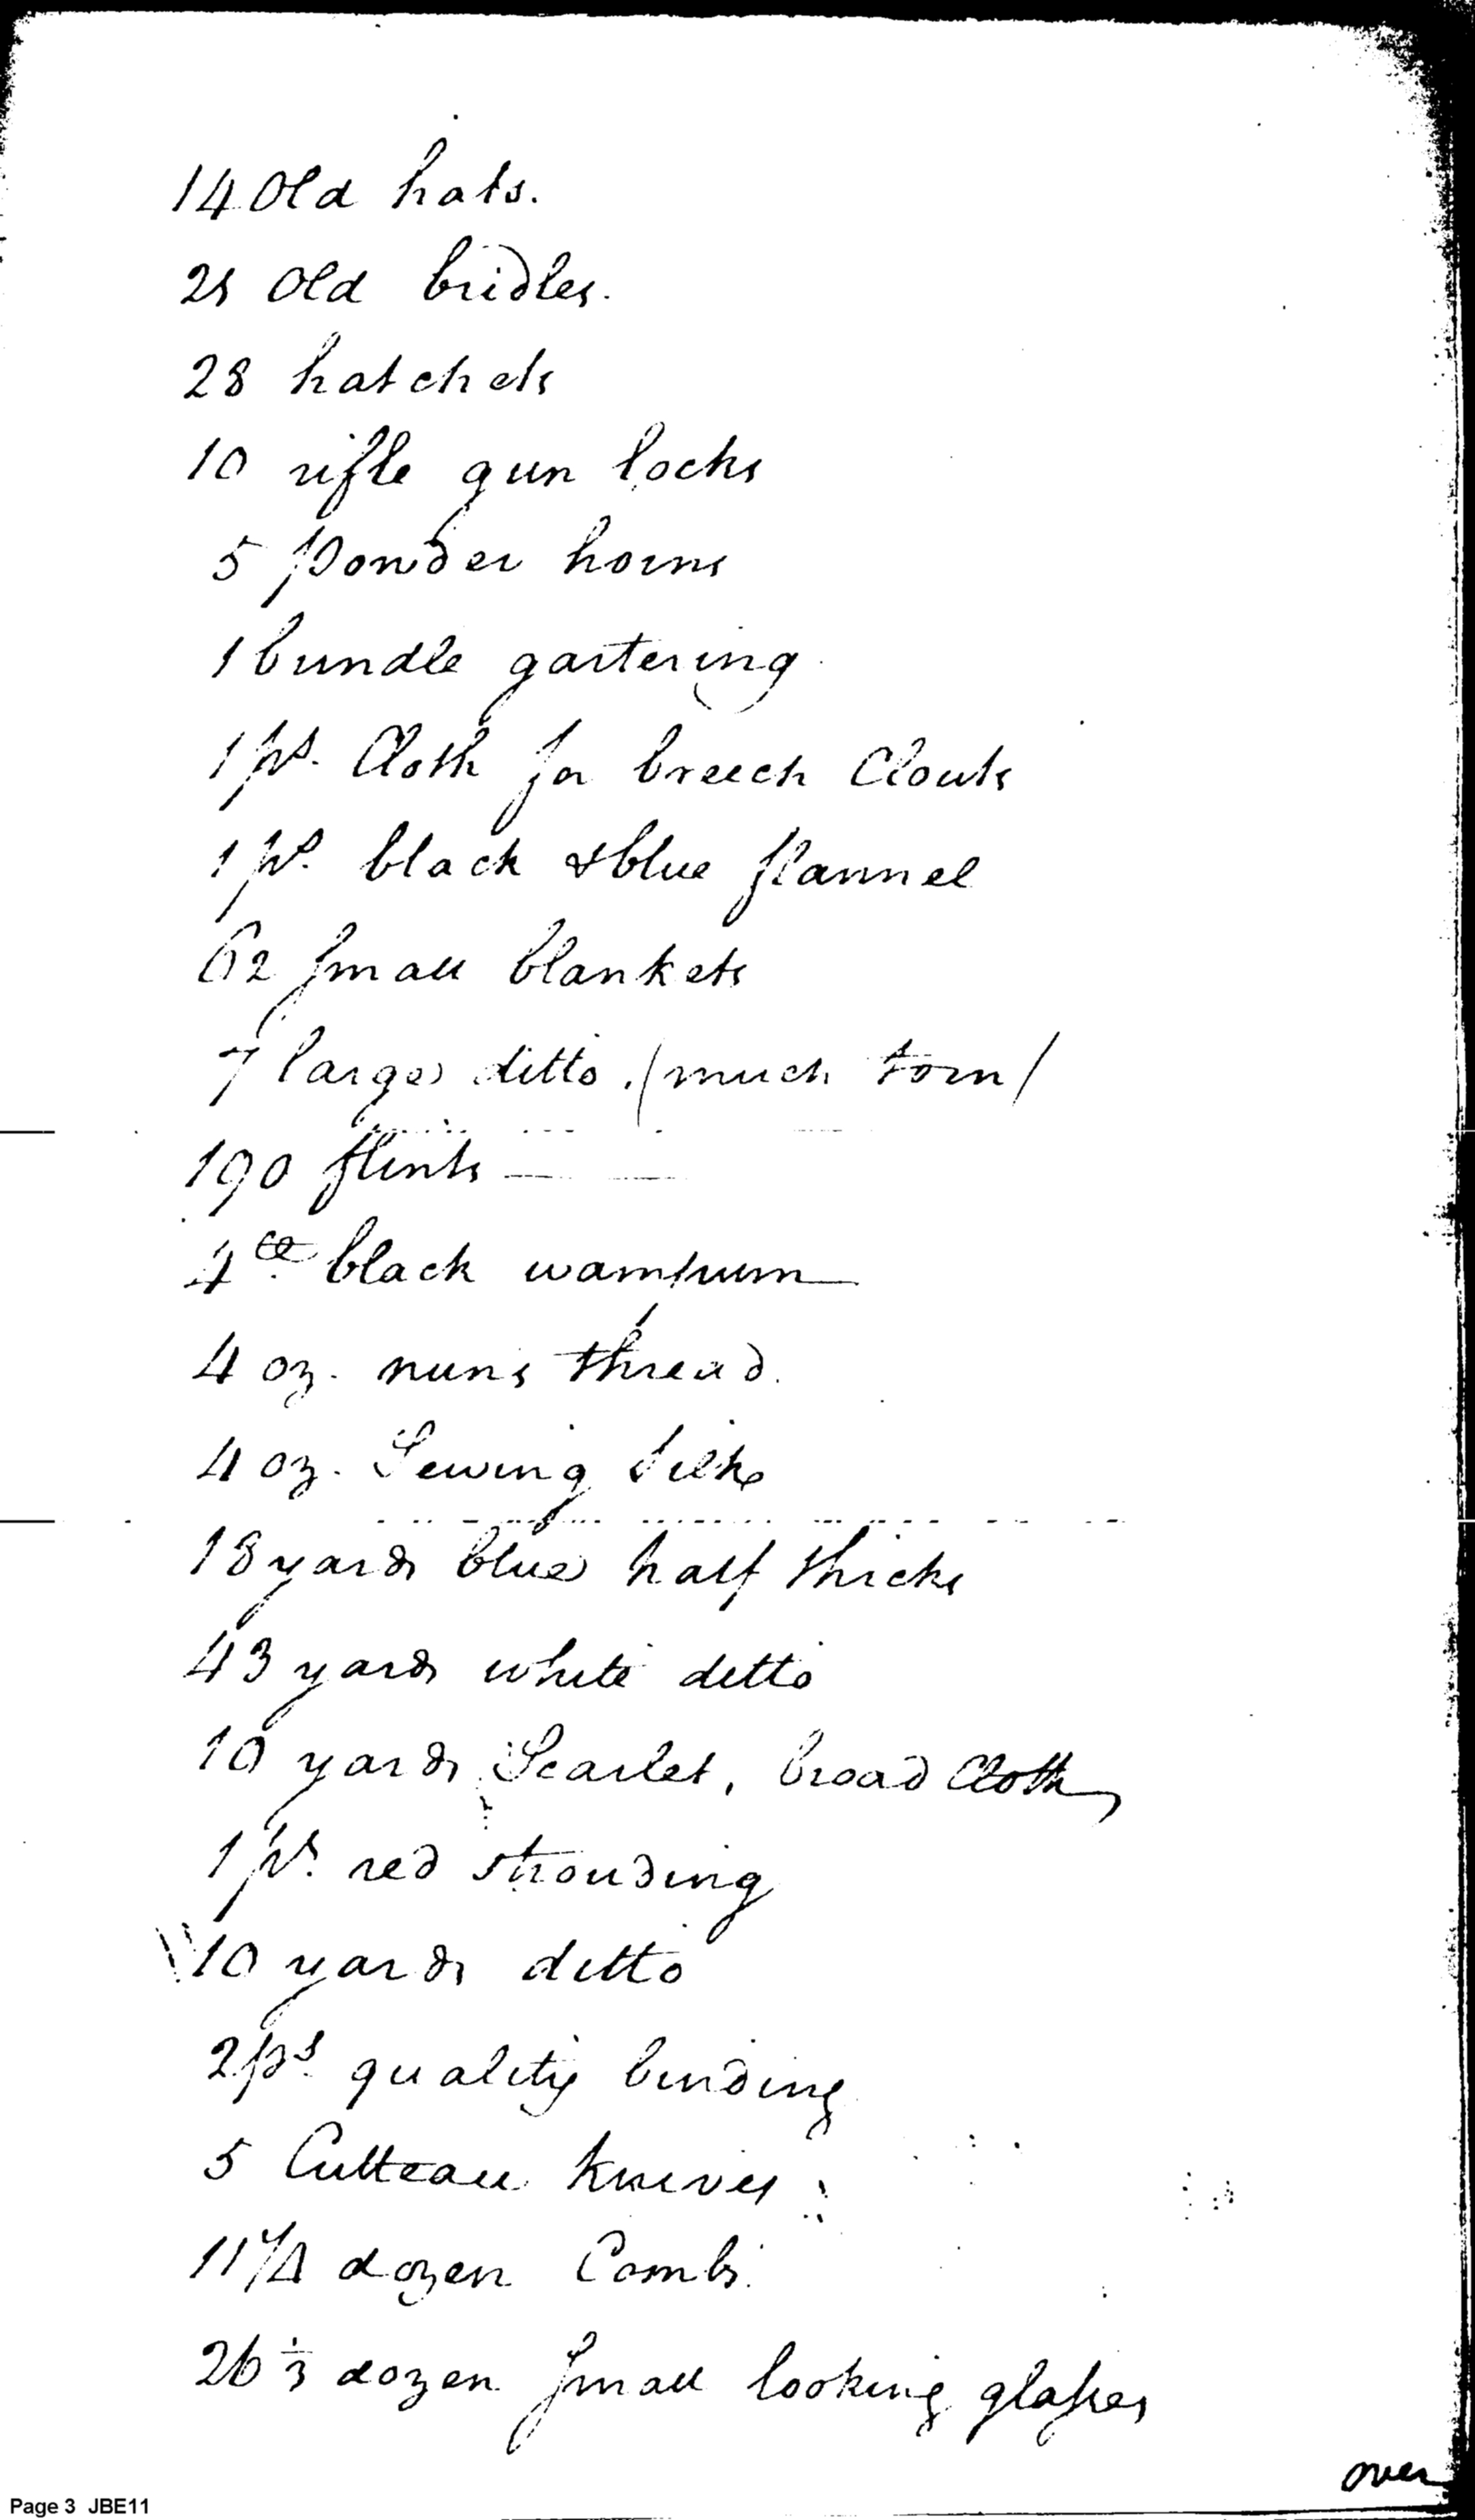 14 Old hats.
21 Old bridles.
28 hatchets
10 rifle gun locks
5 powder horns
1 bundle gartering
1 ps. Cloth for breech Clouts
1 ps. black & blue flannel
62 small blankets
7 large ditto. (much torn)
190 flints
4 black wampum
4 oz. nuns thread.
4 oz. Sewing Silk
18 yards blue half thicks
43 yards white ditto
10 yards Scarlet, broad Cloth
1 ps. red strouding
10 yards ditto
2 ps. quality binding
5 Cutteau Knives
11 1/4 dozen Combs.
26 1/3 dozen small looking glasses
over
Page 3 JBE11